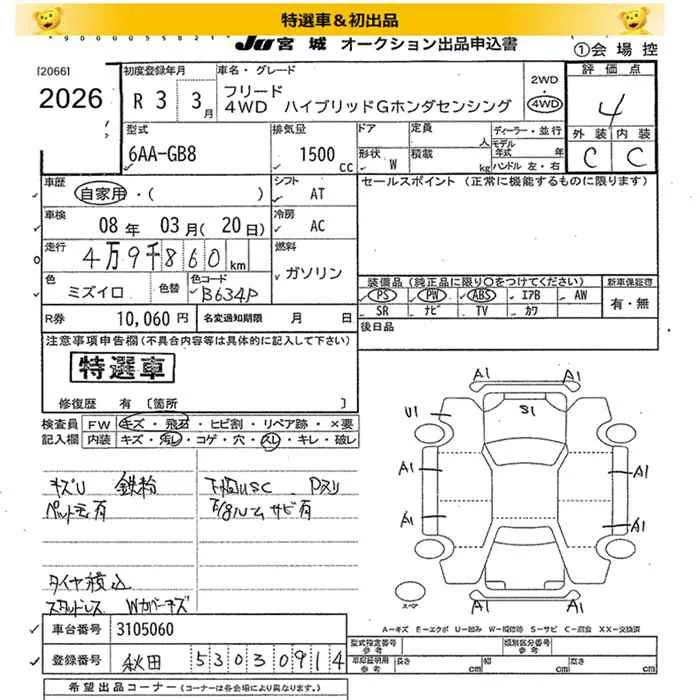 特選車＆初出品
JU宮城 オークション出品申込書
①会場控
[2066]
2026
初度登録年月
R 3 3月
車名・グレード
フリード
4WD ハイブリッドGホンダセンシング
2WD
・
4WD
評価点
4
外装 内装
C C
型式
6AA-GB8
排気量
1500 cc
ドア
定員
人
形状
W
積載
kg
ディーラー・並行
モデル年式 年
ハンドル 左・右
車歴
自家用・( )
シフト
AT
セールスポイント (正常に機能するものに限ります)
車検
08年 03月(20日)
冷房
AC
走行
4万9千860km
燃料
ガソリン
色
ミズイロ
色替
色コード
B634P
装備品 (純正品に限り○をつけてください)
新車保証書
PS・PW・ABS・エアB・AW
・SR・ナビ・TV・カワ
有・無
R券
10,060円
名変通知期限 月 日
後日品
注意事項申告欄(不具合内容等は具体的に記入して下さい)
特選車
修復歴 有 〔箇所 〕
検査員
記入欄
FW キズ・飛石・ヒビ割・リペア跡・×要
内装 キズ・汚レ・コゲ・穴・スレ・キレ・破レ
キズU 鉄粉
ペット毛有
下回りUSC Pスリ
F/Bルーム サビ有
タイヤ積込
スタッドレス Wカバーキズ
A1 A1
U1 S1
A1 A1
A1 A1
A1 A1
スペア
A-キズ E-エクボ U-凹み W-補修跡 S-サビ C-腐食 XX-交換済
車台番号
3105060
登録番号
秋田 530 30914
型式指定番号
参考
類別区分番号
参考
車庫証明用
参考
長さ cm
幅 cm
高さ cm
希望出品コーナー (コーナーは各会場により異なります。)